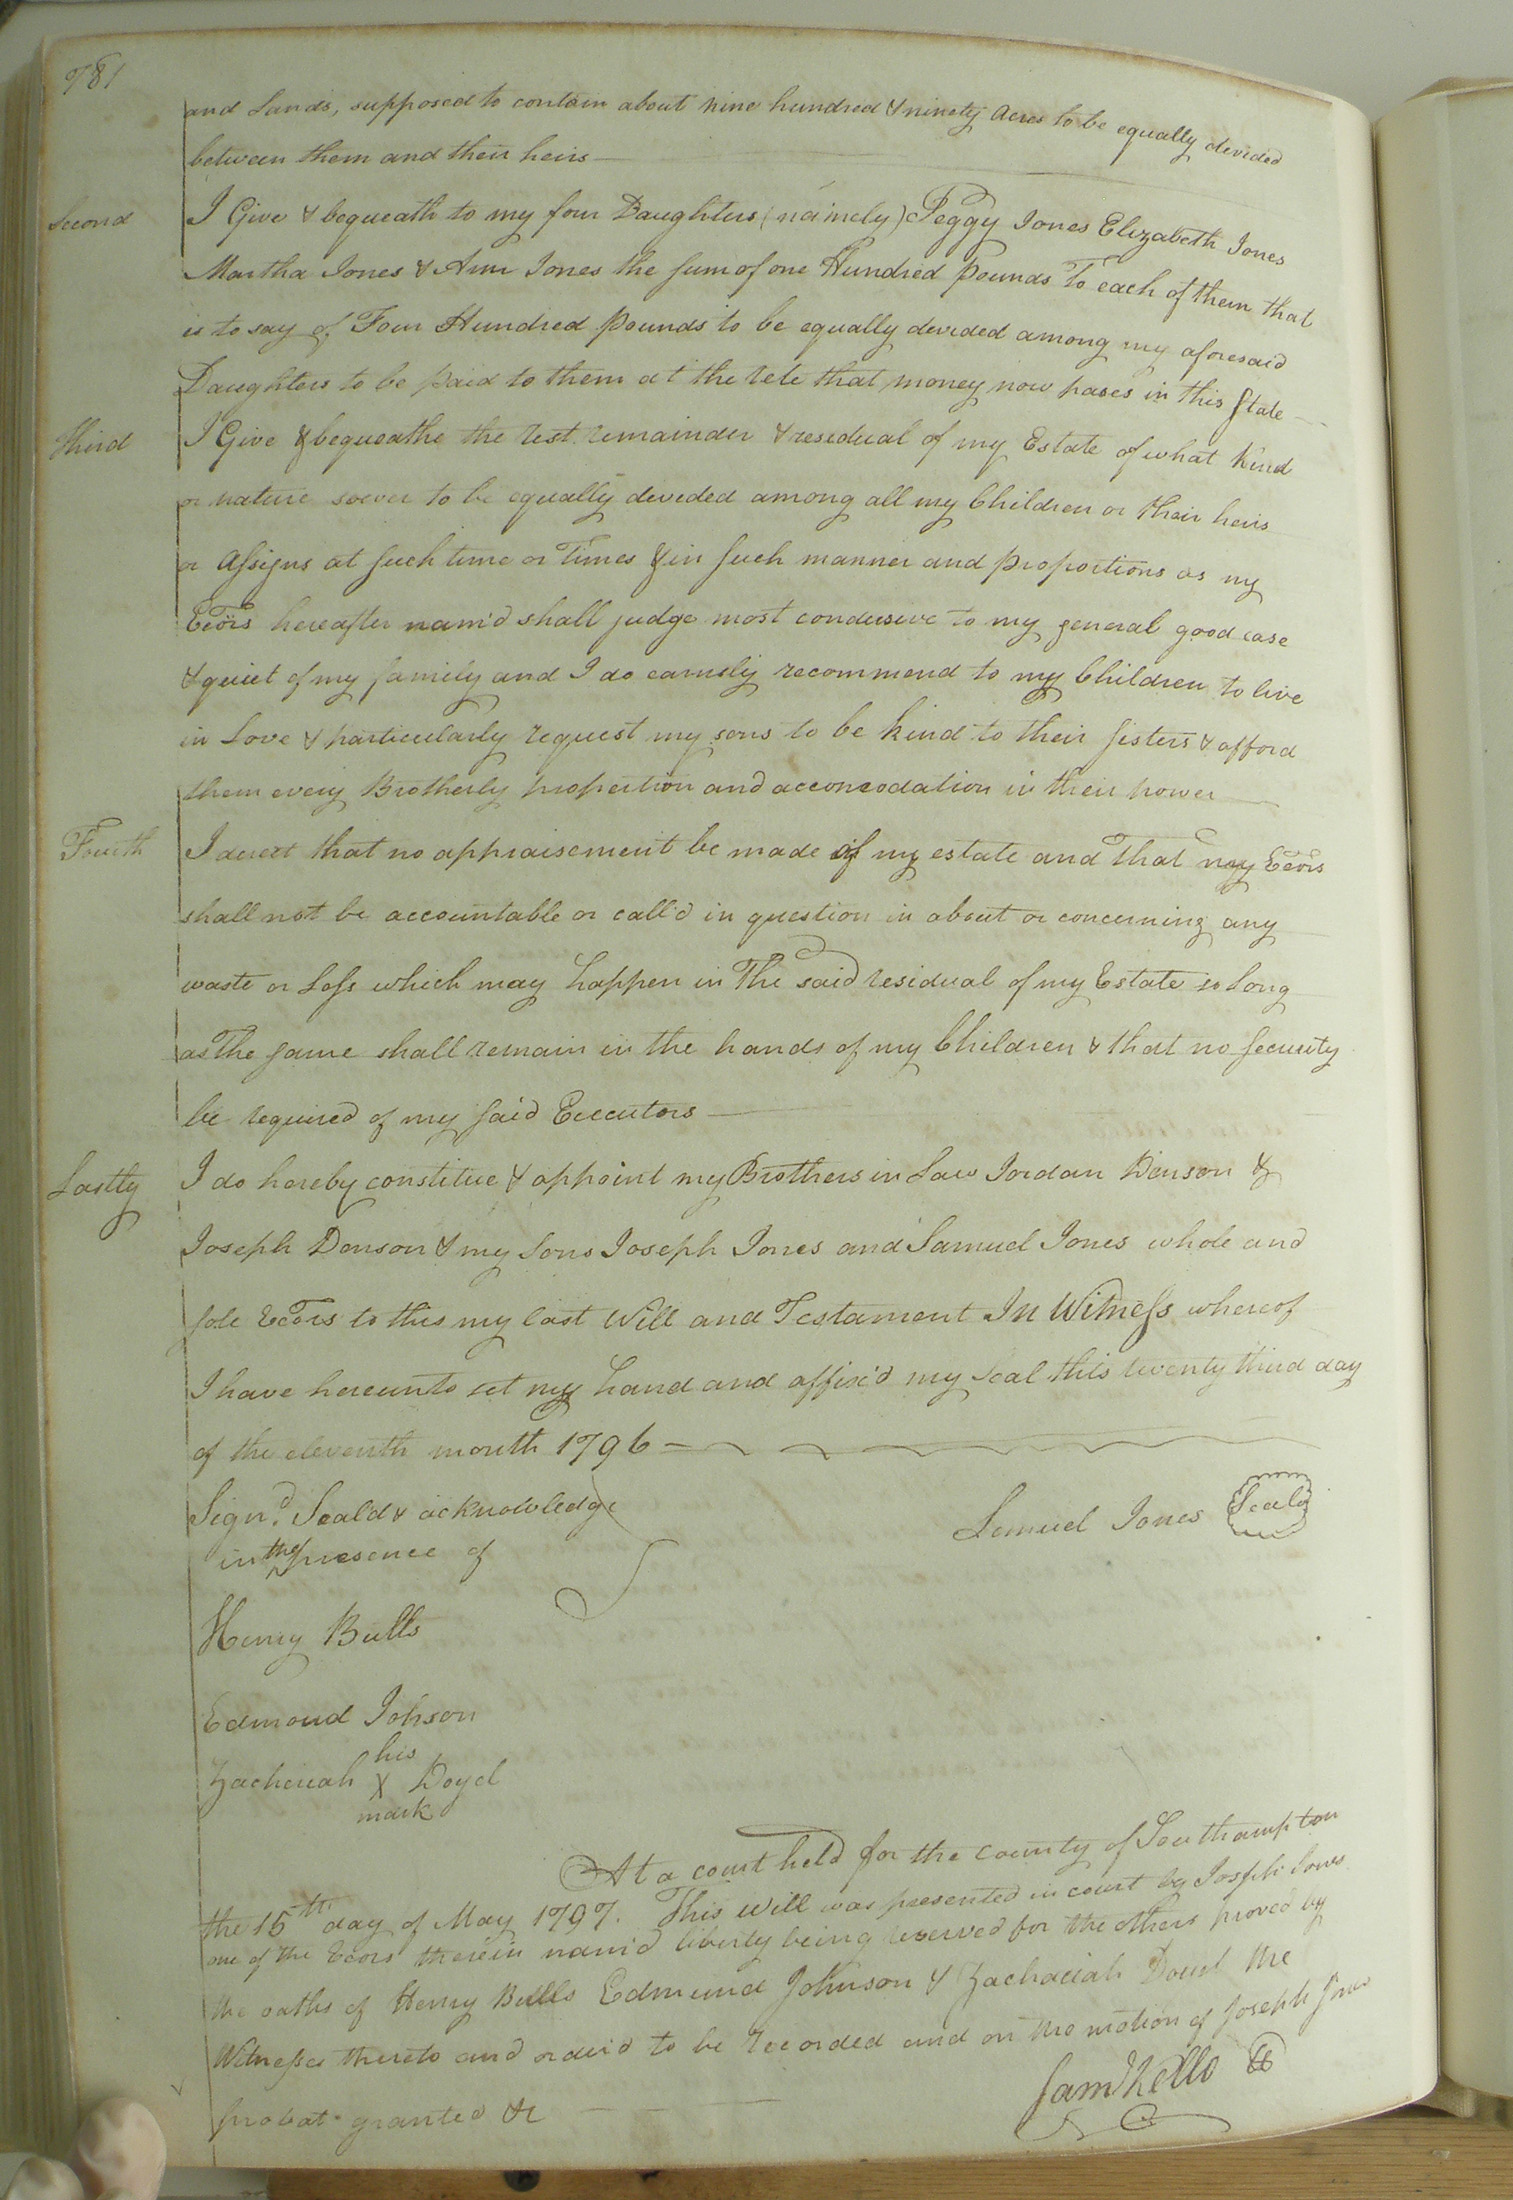 781
and Lands, supposed to contain about nine hundred & ninety Acres to be equally devided
between them and their heirs
Second I Give & bequeath to my four Daughters (namely) Peggy Jones Elizabeth Jones
Martha Jones & Ann Jones the sum of one Hundred pounds To each of them that
is to say of Four Hundred pounds to be equally devided among my aforesaid
Daughters to be paid to them at the rete that money now pases in this State
third I Give & bequeathe the rest remainder & resedual of my Estate of what kind
or nature soever to be equally deveded among all my Children or their heirs
or Assigns at such time or Times & in such manner and proportions as my
Ecors hereafter nam'd shall judge most condusive to my general good ease
& quiet of my family and I do earnesly recommend to my Children to live
in Love & particularly request my sons to be kind to their sisters & afford
them every Brotherly and accomodation in their power
Fourth I derect that no appraisement be made of my estate and that my Ecors
shall not be accountable or call'd in question in about or concerning any
waste or Loss which may happen in The said residual of my Estate so Long
as The same shall remain in the hands of my Children & that no security
be required of my said Executors
Lastly I do hereby constitue & appoint my Brothers in Law Jordan Denson &
Joseph Denson & my Sons Joseph Jones and Samuel Jones whole and
sole Ecors to this my last Will and Testament In Witness whereof
I have hereunto set my hand and affix'd my seal this twenty third day
of the eleventh month 1796
Sign'd Seald & acknowledge
in the presence of
Lemuel Jones Seal
Henry Bulls
Edmond Johson
his
Zacheriah X Doyel
mark
At a court held for the county of Southampton
the 15th day of May 1797. This Will was presented in court by Joseph Jones
one of the Ecors therein nam'd liberty being reserved for the others proved by
the oaths of Henry Bulls Edmund Johnson & Zachariah Doyel the
Witnesses thereto and order'd to be recorded and on the motion of Joseph Jones
probat granted &c
Sam Kello CC